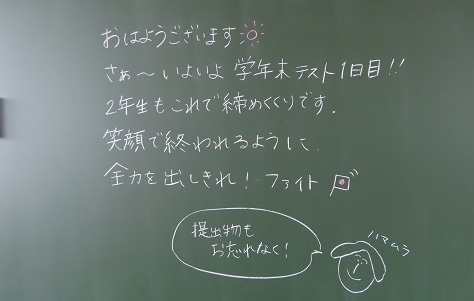 おはようございます
さぁ〜いよいよ 学年末テスト1日目!!
2年生もこれで締めくくりです.
笑顔で終われるように
全力を出しきれ! ファイト
提出物も
お忘れなく!
ハマムラ